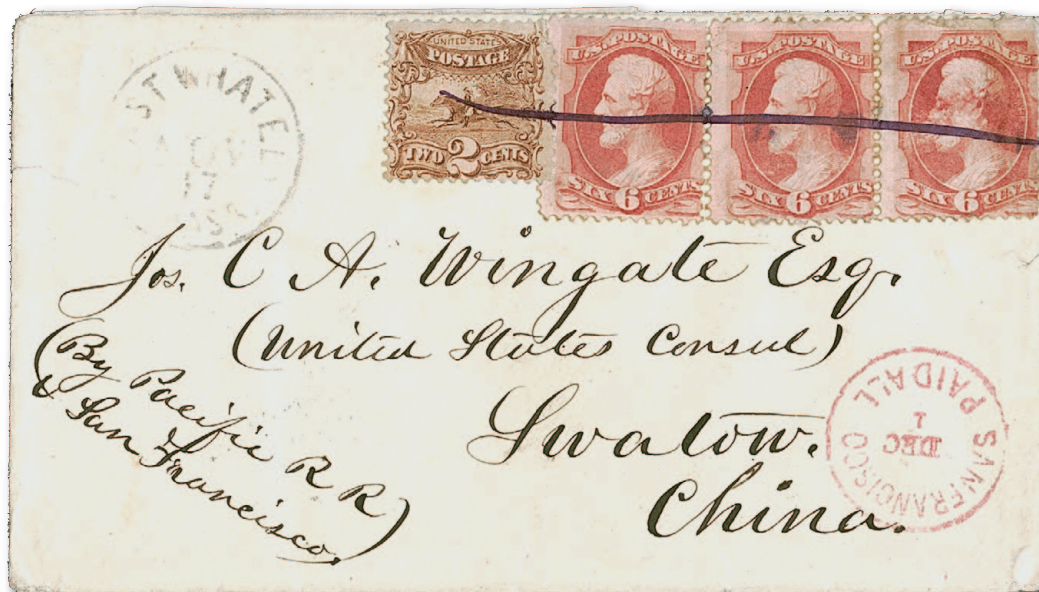 UNITED STATES
POSTAGE
TWO 2 CENTS
U.S. POSTAGE
SIX 6 CENTS
U.S. POSTAGE
SIX 6 CENTS
U.S. POSTAGE
SIX 6 CENTS
ST WHATEL
NOV
17
Jos. C A. Wingate Esq.
(United States Consul)
Swatow.
China.
(By Pacific R R
& San Francisco)
SAN FRANCISCO
DEC
1
PAID ALL